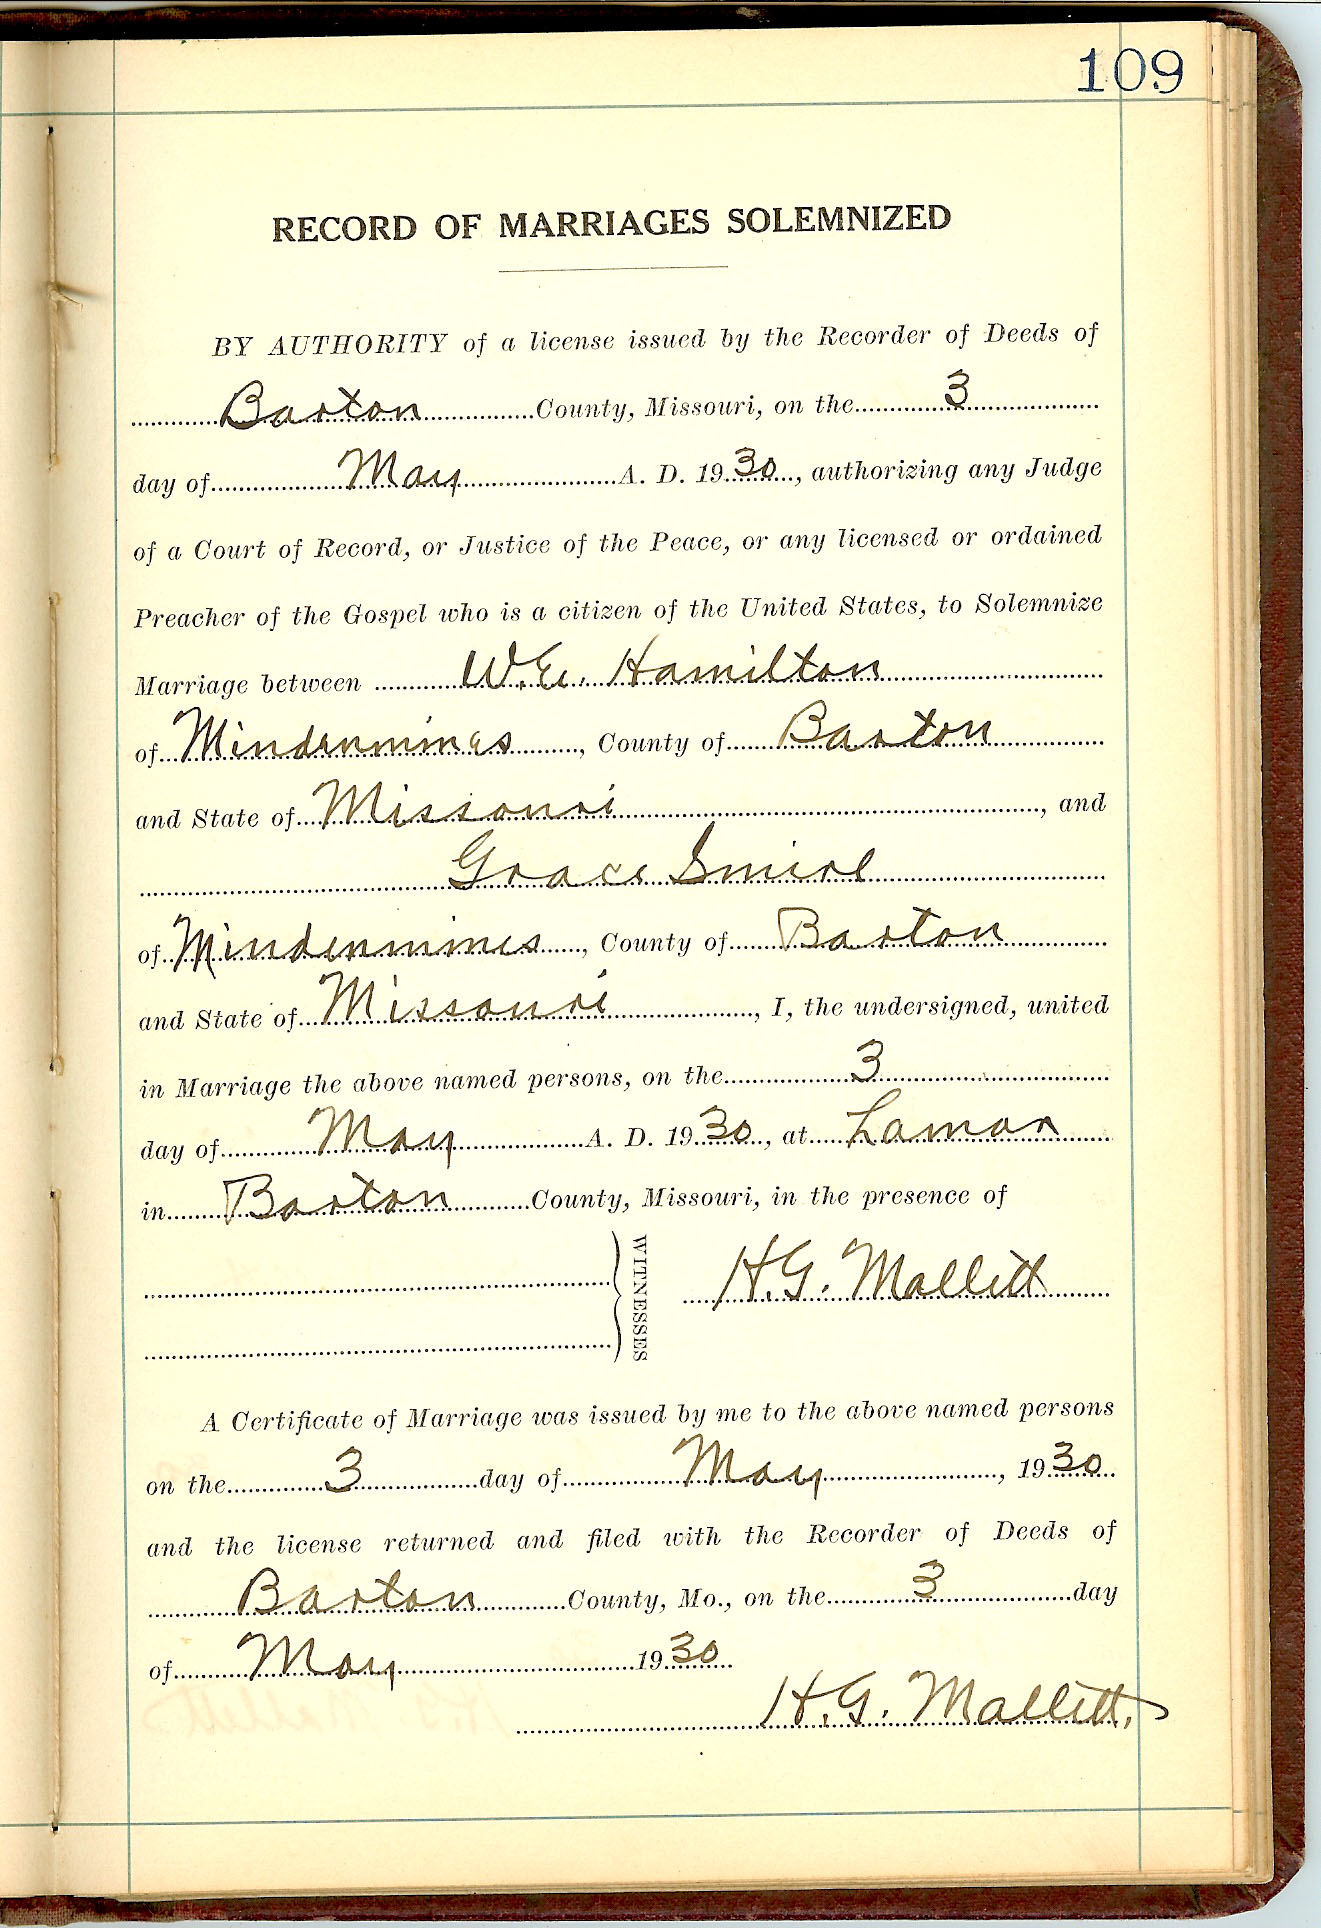 109
RECORD OF MARRIAGES SOLEMNIZED
BY AUTHORITY of a license issued by the Recorder of Deeds of
Barton County, Missouri, on the 3
day of May A. D. 1930, authorizing any Judge
of a Court of Record, or Justice of the Peace, or any licensed or ordained
Preacher of the Gospel who is a citizen of the United States, to Solemnize
Marriage between W.E. Hamilton
of Mindenmines, County of Barton
and State of Missouri, and
Grace Smirl
of Mindenmines, County of Barton
and State of Missouri, I, the undersigned, united
in Marriage the above named persons, on the 3
day of May A. D. 1930, at Lamar
in Barton County, Missouri, in the presence of
WITNESSES
H.G. Mallett
A Certificate of Marriage was issued by me to the above named persons
on the 3 day of May, 1930
and the license returned and filed with the Recorder of Deeds of
Barton County, Mo., on the 3 day
of May 1930
H.G. Mallett.